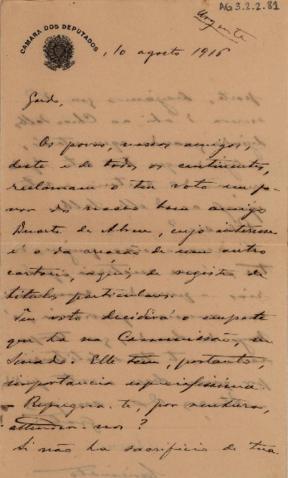 AG 3.2.2.81
Urgente
CAMARA DOS DEPUTADOS
, 10 agosto 1916
Os povos, nossos amigos,
deste e de todos os continentes,
reclamam o teu voto em fa-
vor do nosso bom amigo
Duarte de Abreu, cujo interesse
é o da creação de um outro
cartorio, aqui, de registro de
titulos particulares.
Teu voto decidirá o empate
que ha na Commissão, no
Senado. Elle tem, portanto,
importancia especialissima.
– Repugna-te, por ventura,
attender-nos?
Si não ha sacrificio de tua